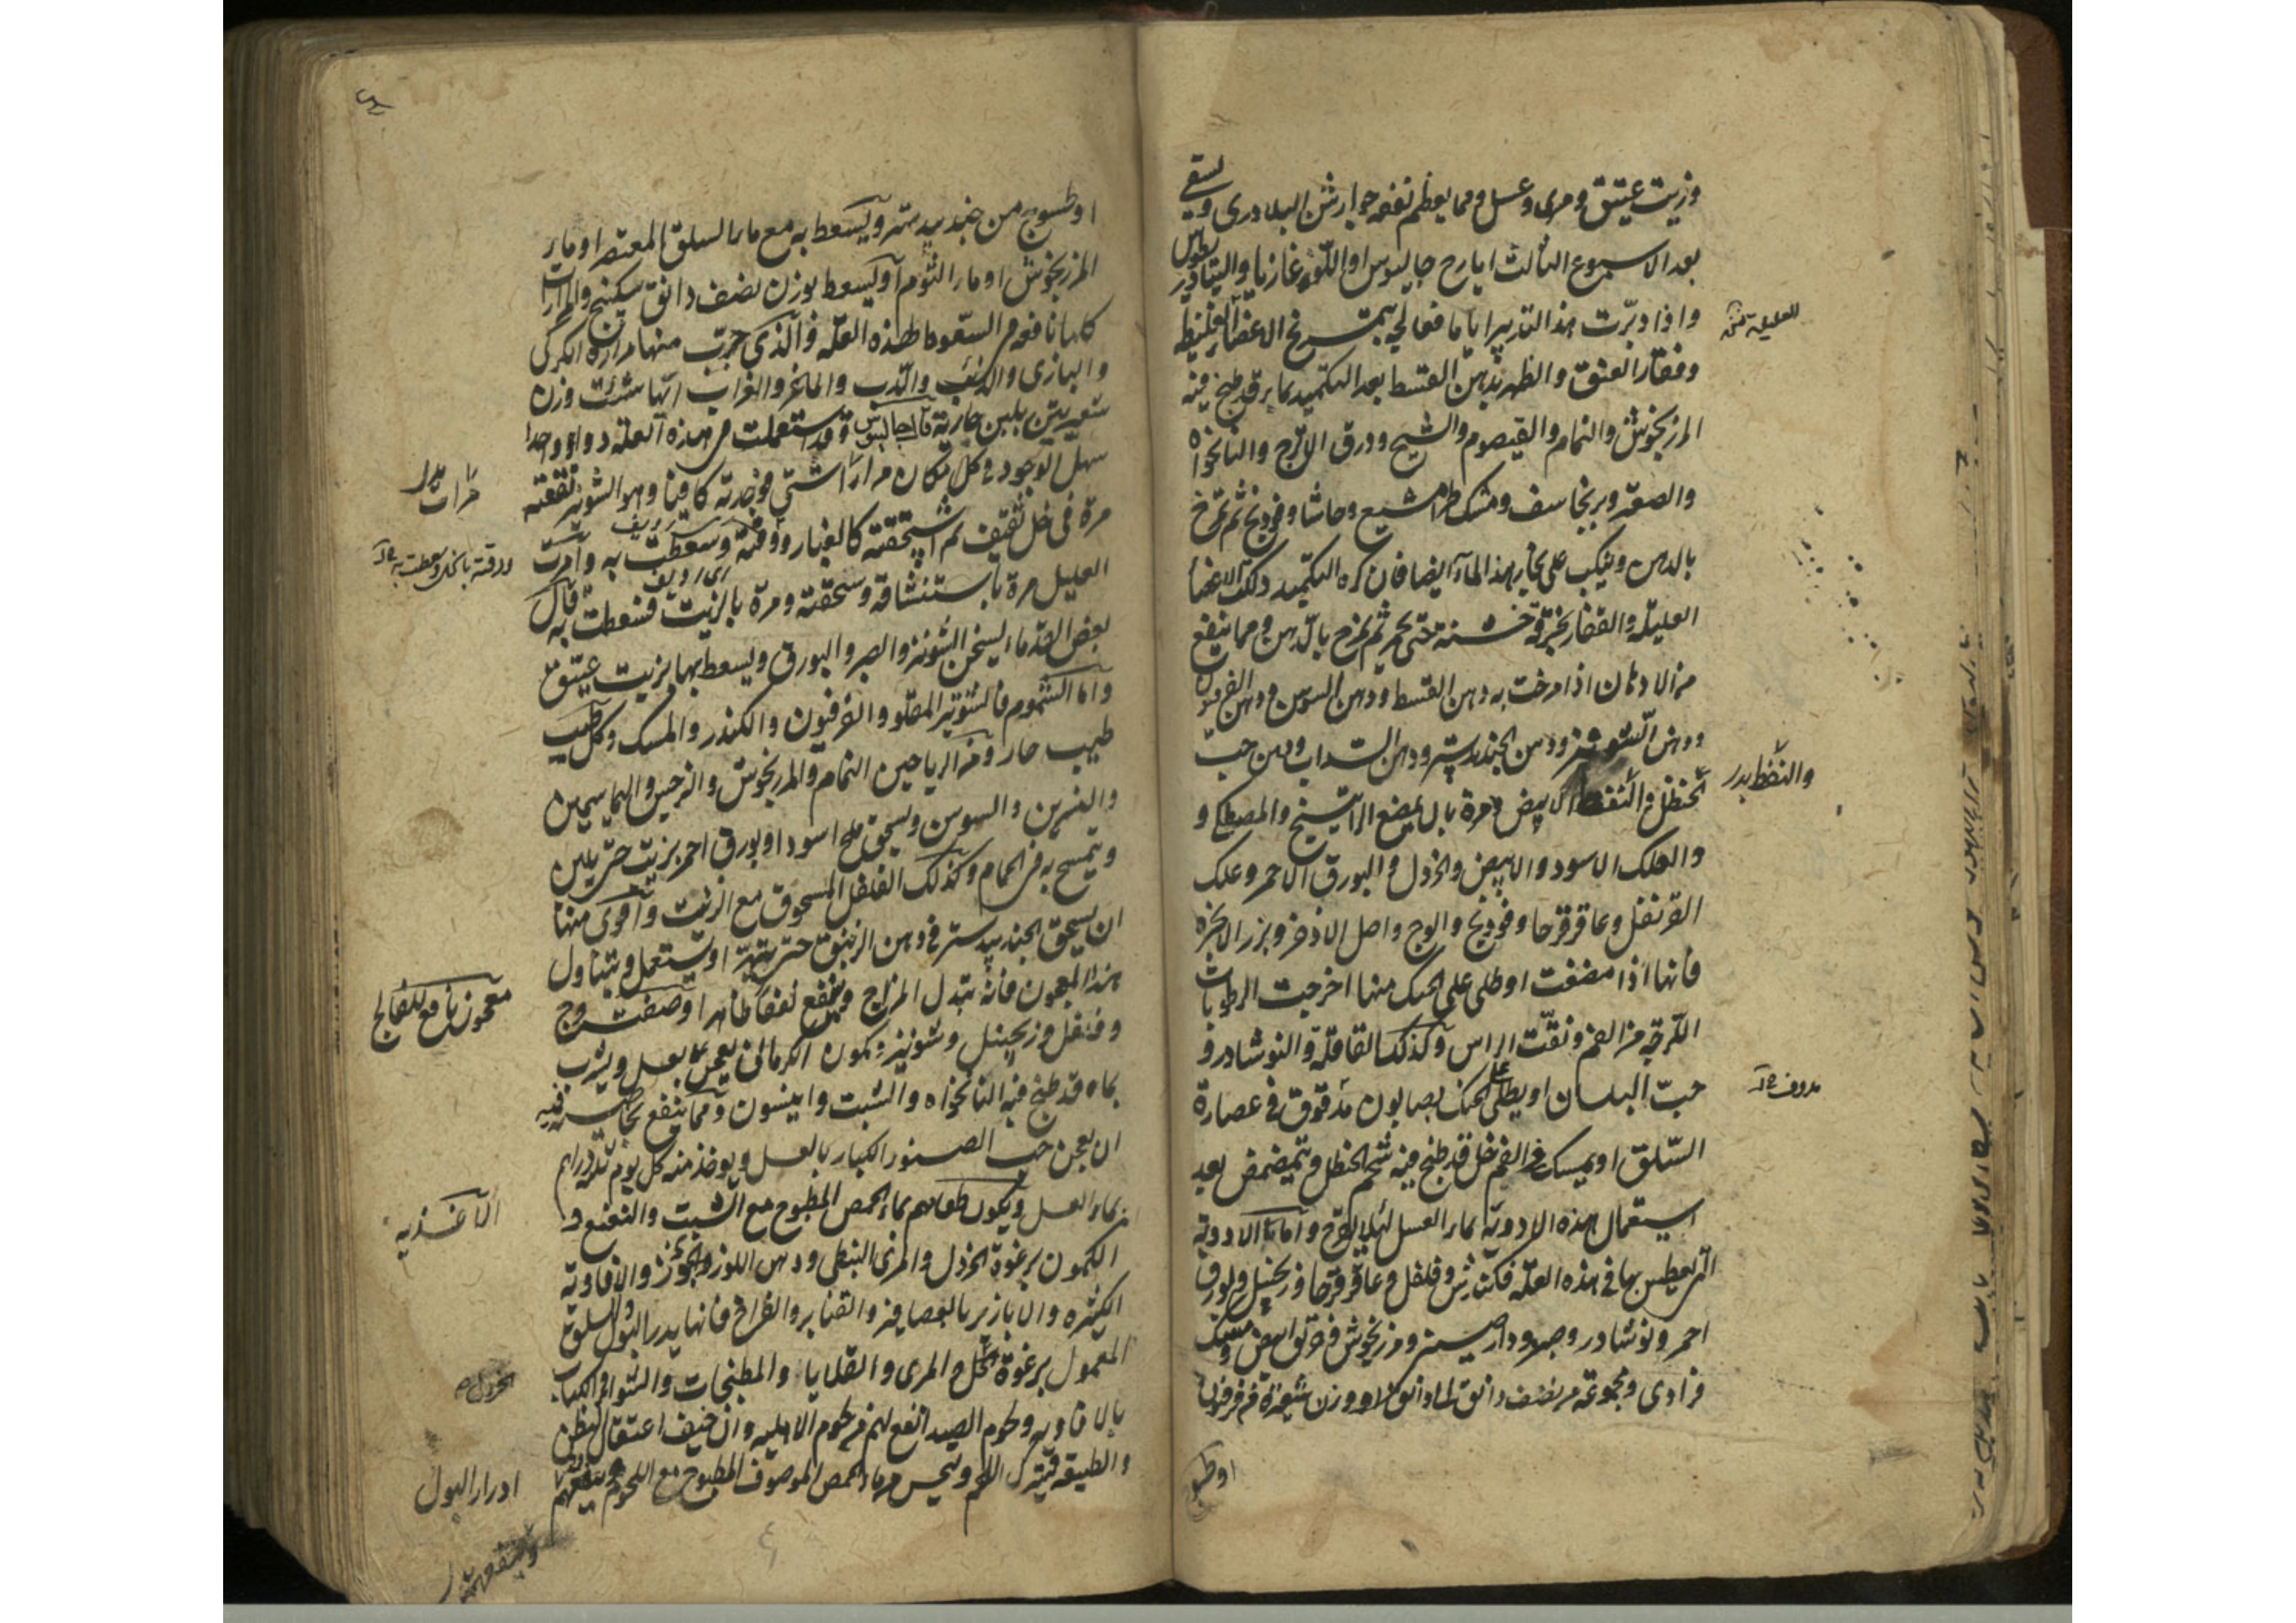 وزيت عتيق ومرى وعسل ومما يعظم نفعه جوارشن البلادرى ويسقى
بعد الاسبوع الثالث ايارج جالينوس او اللوغاذيا والتيادريطوس
واذا دبرت هذا التدبير اياما فعالج بتمريخ الاعضاء الغليظة
العليلة
وفقار العنق والظهر بدهن القسط بعد التكميد بماء قد طبخ فيه
المرزنجوش والنمام والقيصوم والشيح وورق الاترج والنانخواه
والصعتر وبرنجاسف ومشكطرامشيع وحاشا وفودنج ثم تمرخ
بالدهن وينكب على بخار هذا الماء ايضا فان كره التكميد دلك الاعضاء
العليلة والفقار بخرقة خشنة حتى يحمر ثم يمرخ بالدهن ومما ينفع
من الادهان اذا مرخت به دهن القسط ودهن السوسن ودهن الفرفيون
ودهن الشونيز ودهن الجندبيدستر ودهن السداب ودهن حب
والنفط
الحنظل والنفط الابيض ومره بان يمضغ الراتينج والمصطكى و
والعلك الاسود والابيض والخردل والبورق الاحمر وعلك
القرنفل وعاقرقرحا وفودنج والوج واصل الاذخر وبزر الانجره
فانها اذا مضغت او طلى على الحنك منها اخرجت الرطوبات
اللزجة من الفم ونقت الراس وكذلك القاقلة والنوشادر و
حب البلسان او يطلى على الحنك بصابون مدقوق فى عصارة
مدوف
السلق او يمسك فى الفم خل قد طبخ فيه شحم الحنظل ويتمضمض بعد
استعمال هذه الادوية بماء العسل لئلا يقرح واما الادوية
التى يعطس بها فى هذه العلة فكندش وفلفل وعاقرقرحا وزنجبيل وبورق
احمر ونوشادر وصبر ودارصينى ومرزنجوش وخربق ابيض ومسك
فرادى ومجموعة من نصف دانق الى دانق او وزن شعيرة من فرفيون
او طسوج
او طسوج من جندبيدستر ويسعط به مع ماء السلق المعتصر او ماء
المرزنجوش او ماء الثوم او يسعط بوزن نصف دانق سكبينج والمرارات
كلها نافعة من السعوط لهذه العلة والذى جربت منها مرارة الكركى
والبازى والذئب والدب والماعز والغراب ايها شئت وزن
شعيرتين بلبن جارية قال جالينوس وقد استعملت فى هذه العلة دواء واحدا
سهل الوجود فى كل مكان مرارا شتى فوجدته كافيا وهو الشونيز نقعته
مرات
مرة فى خل ثقيف ثم سحقته كالغبار ودفته وسعطت به وامرت
ودفته بالخل وسعطت به
العليل مرة باستنشاقه وسحقته ومرة بالزيت فسعطت به قال
بعض القدماء ليسحق الشونيز والصبر والبورق ويسعط بها بزيت عتيق
واما الشموم فالشونيز المقلو والفرفيون والكندر والمسك وكل طيب
طيب حار ومن الرياحين النمام والمرزنجوش والنرجس والياسمين
والنسرين والسوسن ويسحق ملح اسود او بورق احمر بزيت حتى يلين
ويتمسح به فى الحمام وكذلك الفلفل المسحوق مع الزيت واقوى منها
ان يسحق الجندبيدستر فى دهن الزنبق حتى يتهرا ويستعمل ويتناول
هذا المعجون فانه يبدل المزاج وينفع نفعا ظاهرا وصفته وج
معجون نافع للفالج
وفلفل وزنجبيل وشونيز وكمون الكرمانى يعجن بعسل ويشرب
بماء قد طبخ فيه النانخواه والشبت وانيسون ومما ينفع
ان يعجن حب الصنوبر الكبار بالعسل ويوخذ منه كل يوم ثلاثة دراهم
بماء العسل ويكون طعامهم ماء الحمص المطبوخ مع الشبت والنعنع و
الاغذيه
الكمون برغوة الخردل والمرى النبطى ودهن اللوز والجوز والافاويه
الكثيره والابازير بالعصافير والقنابر والفراخ فانها يدر البول والسلق
المعمول برغوة الخل والمرى والقلايا والمطجنات والشواء والكباب
الخردل
بالافاويه ولحوم الصيد انفع لهم من لحوم الاهلية وان خيف اعتقال البطن
والطبيعة فيترك اللحم وليحس من ماء الحمص الموصوف المطبوخ مع اللحوم
ادرار البول